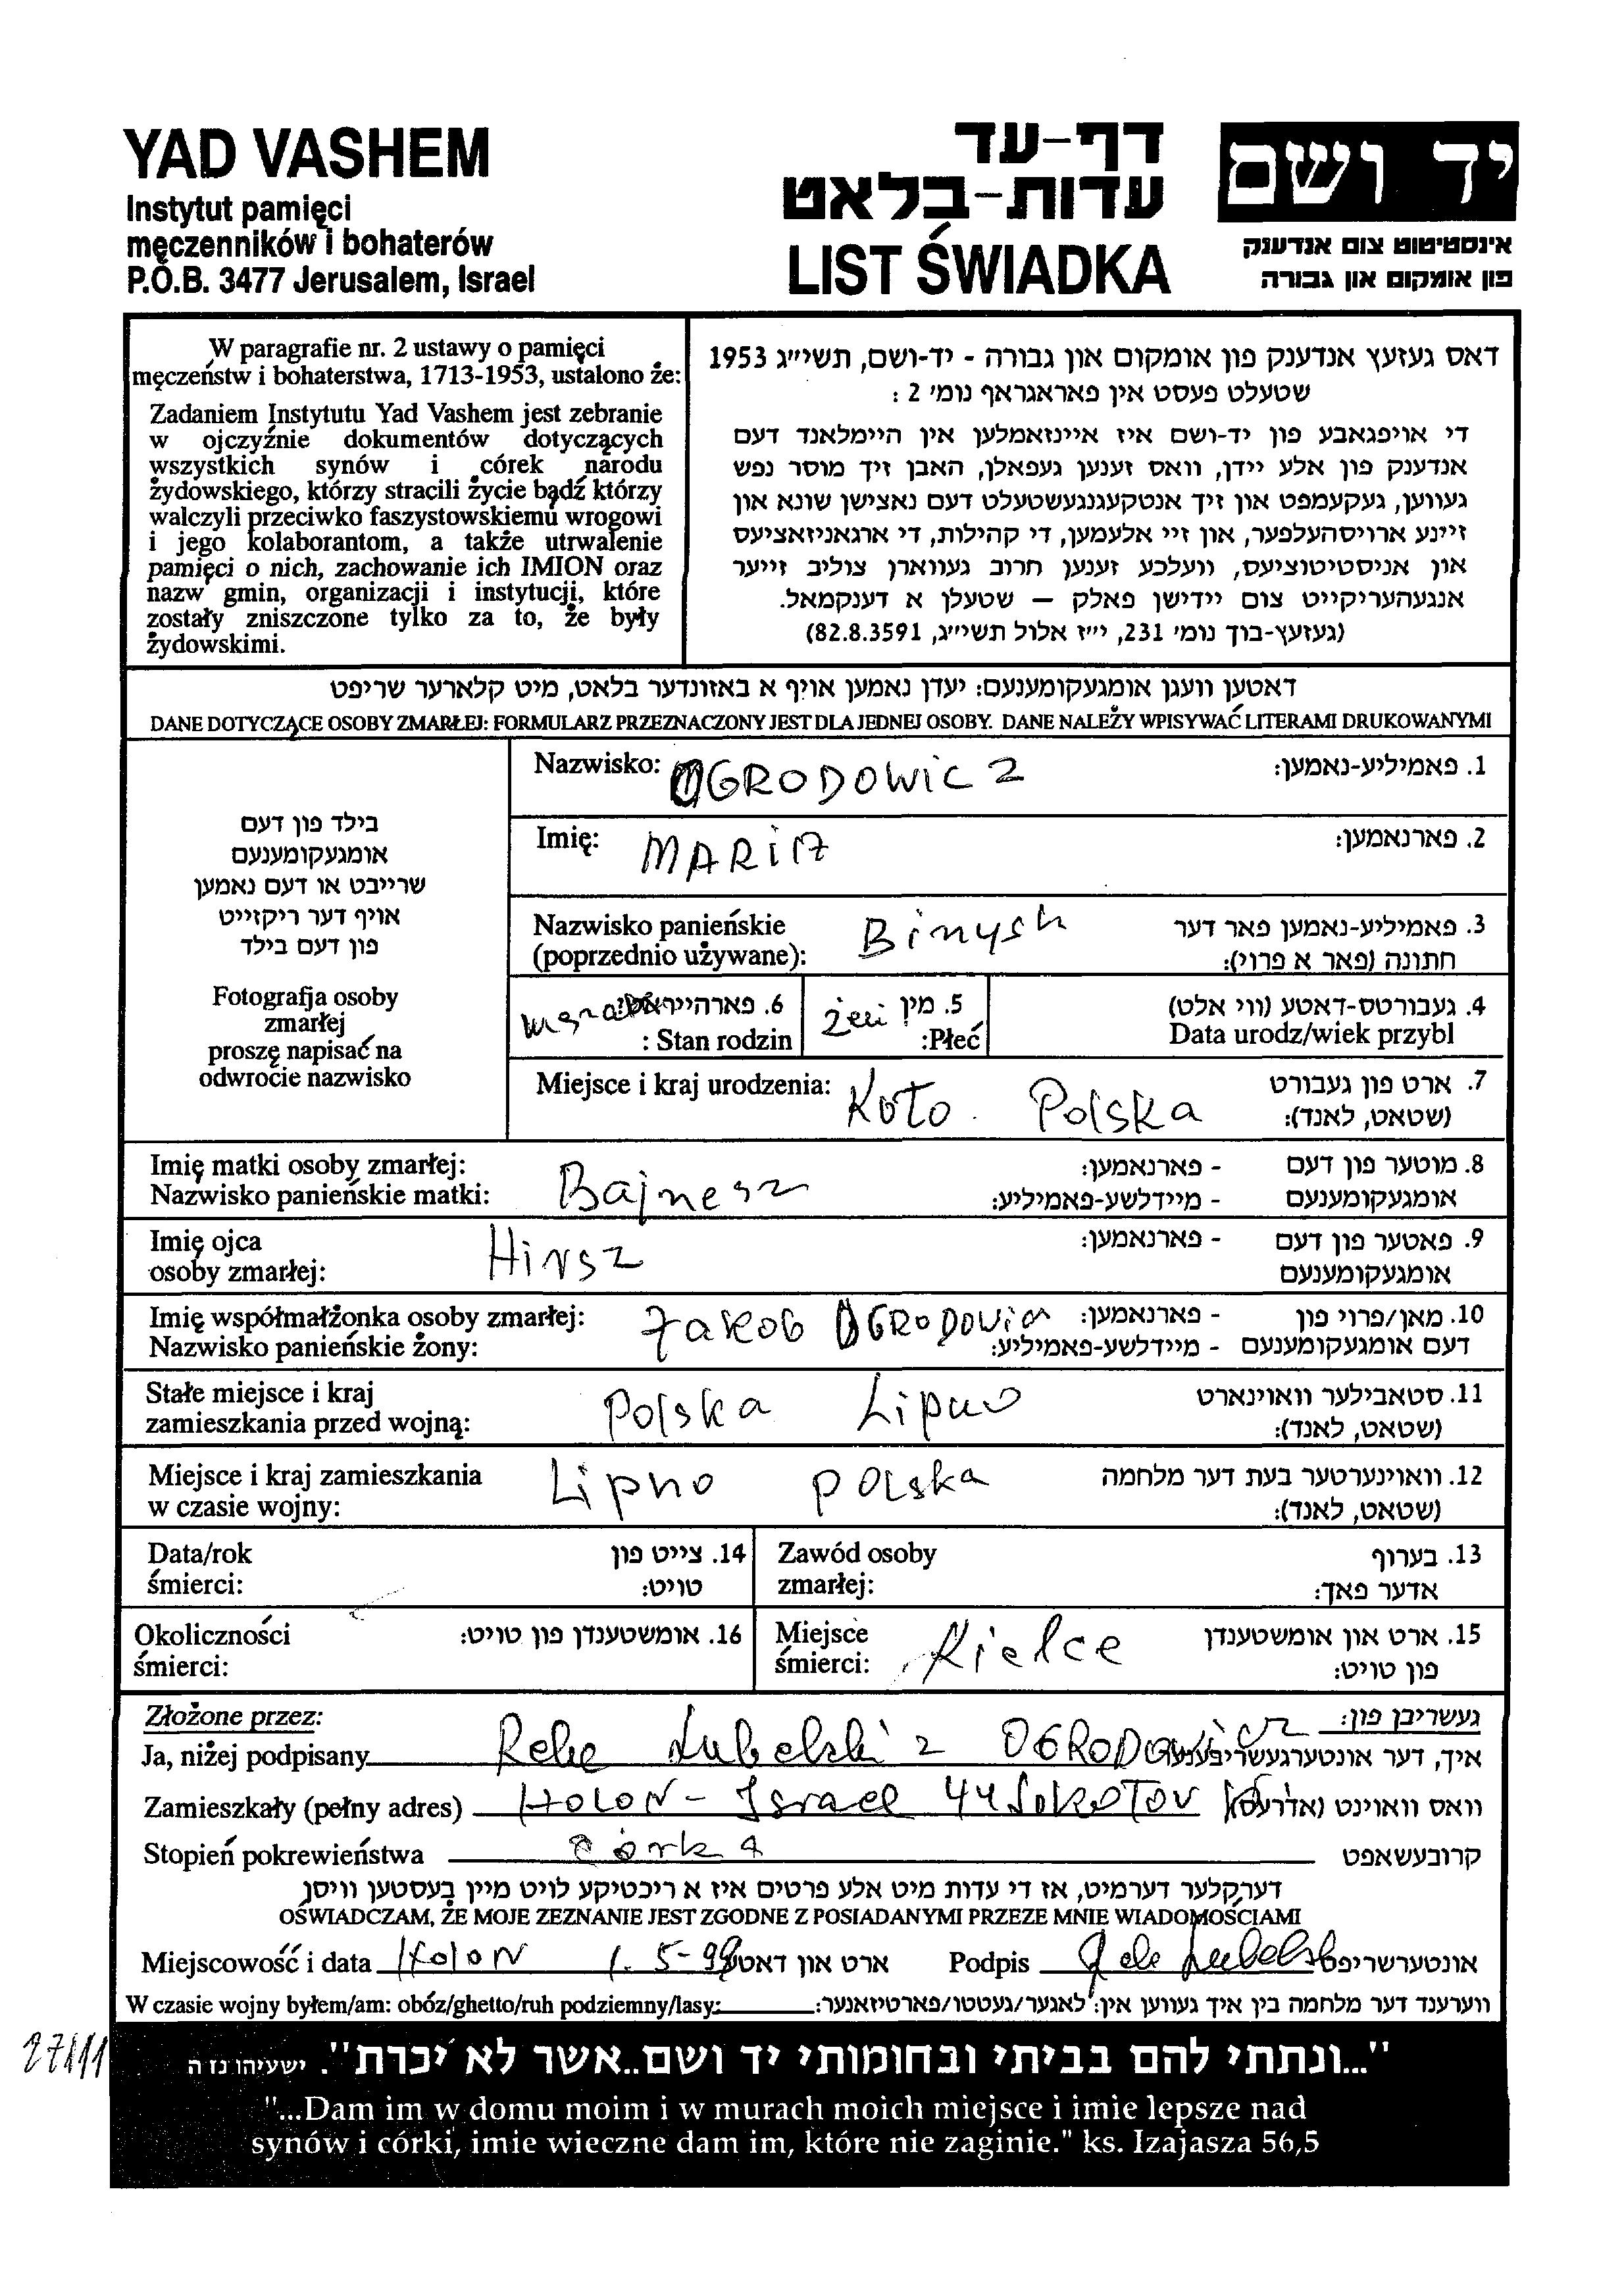 YAD VASHEM
Instytut pamięci
męczenników i bohaterów
P.O.B. 3477 Jerusalem, Israel
דף-עד
עדות-בלאט
LIST ŚWIADKA
יד ושם
אינסטיטוט צום אנדענק
פון אומקום און גבורה
W paragrafie nr. 2 ustawy o pamięci
męczeństw i bohaterstwa, 1713-1953, ustalono że:
Zadaniem Instytutu Yad Vashem jest zebranie
w ojczyźnie dokumentów dotyczących
wszystkich synów i córek narodu
żydowskiego, którzy stracili życie bądź którzy
walczyli przeciwko faszystowskiemu wrogowi
i jego kolaborantom, a także utrwalenie
pamięci o nich, zachowanie ich IMION oraz
nazw gmin, organizacji i instytucji, które
zostały zniszczone tylko za to, że były
żydowskimi.
דאס געזעץ אנדענק פון אומקום און גבורה - יד-ושם, תשי״ג 1953
שטעלט פעסט אין פאראגראף נומ׳ 2 :
די אויפגאבע פון יד-ושם איז איינזאמלען אין היימלאנד דעם
אנדענק פון אלע יידן, וואס זענען געפאלן, האבן זיך מוסר נפש
געווען, געקעמפט און זיך אנטקעגנגעשטעלט דעם נאצישן שונא און
זיינע ארויסהעלפער, און זיי אלעמען, די קהילות, די ארגאניזאציעס
און אניסטיטוציעס, וועלכע זענען חרוב געווארן צוליב זייער
אנגעהעריקייט צום יידישן פאלק – שטעלן א דענקמאל.
(געזעץ-בוך נומ׳ 231, י״ז אלול תשי״ג, 82.8.3591)
דאטען וועגן אומגעקומענעם: יעדן נאמען אויף א באזונדער בלאט, מיט קלארער שריפט
DANE DOTYCZĄCE OSOBY ZMARŁEJ: FORMULARZ PRZEZNACZONY JEST DLA JEDNEJ OSOBY. DANE NALEŻY WPISYWAĆ LITERAMI DRUKOWANYMI
בילד פון דעם
אומגעקומענעם
שרייבט או דעם נאמען
אויף דער ריקזייט
פון דעם בילד
Fotografja osoby
zmarłej
proszę napisać na
odwrocie nazwisko
Nazwisko: OGRODOWICZ 1. פאמיליע-נאמען:
Imię: MARIA 2. פארנאמען:
Nazwisko panieńskie 3. פאמיליע-נאמען פאר דער
(poprzednio używane): Binysh חתונה (פאר א פרוי):
6. פארהייראט: 5. מין 4. געבורטס-דאטע (ווי אלט)
: Stan rodzin :Płeć Data urodz/wiek przybl
Miejsce i kraj urodzenia: Koło Polska 7. ארט פון געבורט
(שטאט, לאנד):
Imię matki osoby zmarłej: - פארנאמען: 8. מוטער פון דעם
Nazwisko panieńskie matki: Bajnesz - מיידלשע-פאמיליע: אומגעקומענעם
Imię ojca Hirsz - פארנאמען: 9. פאטער פון דעם
osoby zmarłej: אומגעקומענעם
Imię współmałżonka osoby zmarłej: Jakob OGRODOWICZ - פארנאמען: 10. מאן/פרוי פון
Nazwisko panieńskie żony: - מיידלשע-פאמיליע: דעם אומגעקומענעם
Stałe miejsce i kraj 11. סטאבילער וואוינארט
zamieszkania przed wojną: Polska Lipno (שטאט, לאנד):
Miejsce i kraj zamieszkania Lipno POLska 12. וואוינערטער בעת דער מלחמה
w czasie wojny: (שטאט, לאנד):
Data/rok 14. צייט פון Zawód osoby 13. בערוף
śmierci: טויט: zmarłej: אדער פאך:
Okoliczności 16. אומשטענדן פון טויט: Miejsce Kielce 15. ארט און אומשטענדן
śmierci: śmierci: פון טויט:
Złożone przez: געשריבן פון:
Ja, niżej podpisany Lubelski z OGRODOWICZ איך, דער אונטערגעשריבענער
Zamieszkały (pełny adres) HOLON - Israel 44 SOKOŁOV וואס וואוינט (אדרעס)
Stopień pokrewieństwa córka קרובעשאפט
דערקלער דערמיט, אז די עדות מיט אלע פרטים איז א ריכטיקע לויט מיין בעסטען וויסן
OŚWIADCZAM, ŻE MOJE ZEZNANIE JEST ZGODNE Z POSIADANYMI PRZEZE MNIE WIADOMOŚCIAMI
Miejscowość i data Holon 1. 5-99 ארט און דאטע Podpis Lubelski אונטערשריפט
W czasie wojny byłem/am: obóz/ghetto/ruh podziemny/lasy: ווערענד דער מלחמה בין איך געווען אין: לאגער/געטטו/פארטיזאנער:
"...ונתתי להם בביתי ובחומותי יד ושם..אשר לא יכרת". ישעיהו נז ה
"...Dam im w domu moim i w murach moich miejsce i imie lepsze nad
synów i córki, imie wieczne dam im, które nie zaginie." ks. Izajasza 56,5